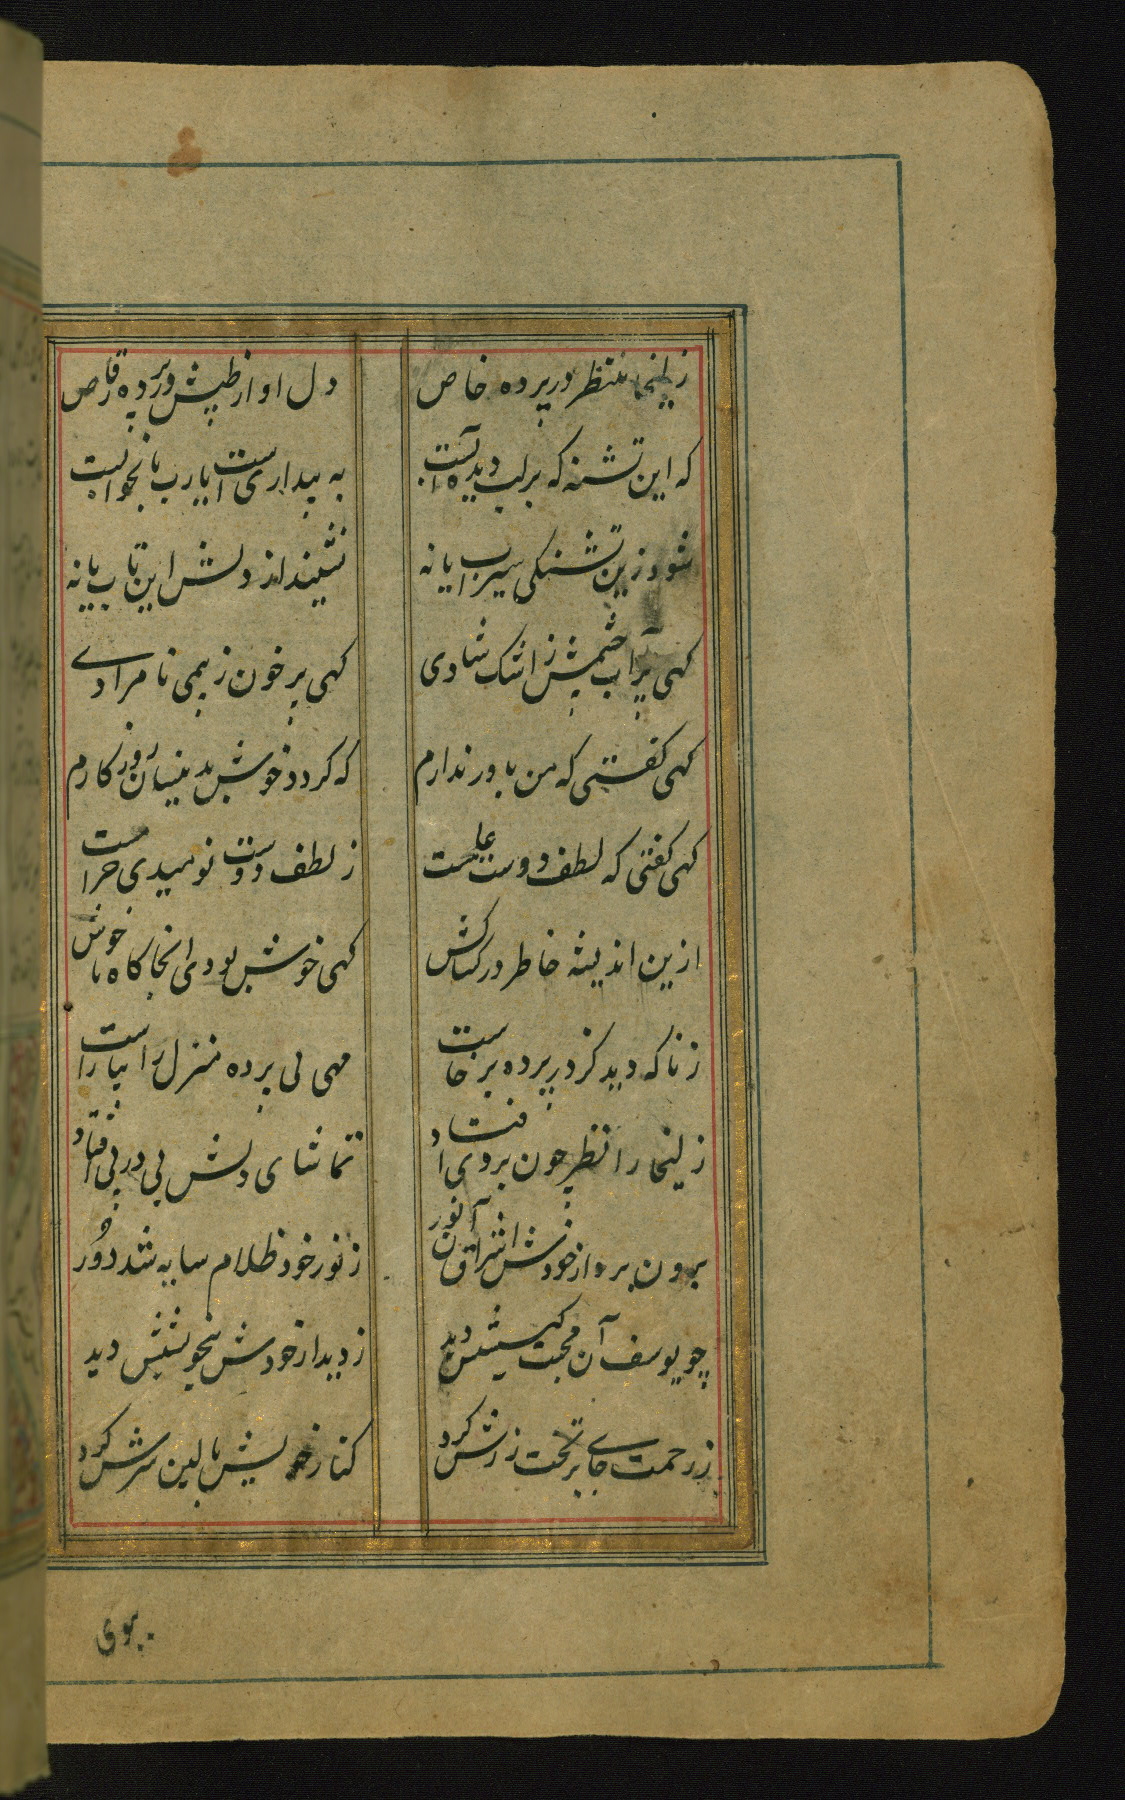 زلیخا منتظر در پرده خاص دل او از طپش در پرده رقاص
که این تشنه که بر لب دیده آبست به بیداریست یا رب یا بخوابست
شود زین تشنکی سیراب یا نه نشیند از دلش این تاب یا نه
کهی پر آب چشمش ز اشک شادی کهی پر خون ز بیم نامرادی
کهی کفتی که من باور ندارم که کردد خوش بدینسان روزکارم
کهی کفتی که لطف دوست عامست ز لطف دوست نومیدی حرامست
ازین اندیشه خاطر در کشاکش کهی خوش بودی انجا کاه ناخوش
ز ناکه دید کز در پرده برخاست مهی بی پرده منزل را بیاراست
زلیخا را نظر چون بروی افتاد تماشای دلش پی در پی افتاد
برون برد از خودش اشراق آن نور ز نور خود ظلام سایه شد دور
چو یوسف آن محبت کیشیش دید ز دیدار خودش بیخویشیش دید
ز رحمت جای بر تخت زرش کرد کنار خویش بالین سرش کرد
بوی